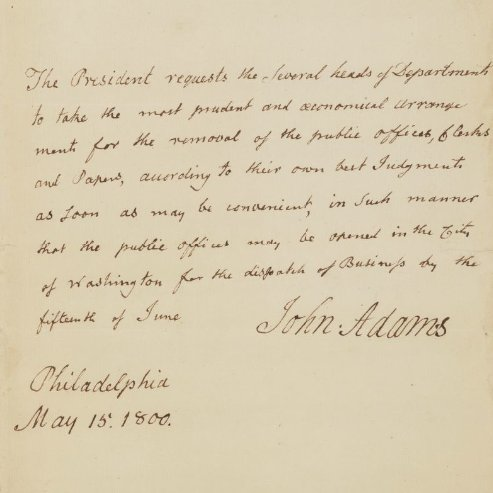 The President requests the Several heads of Departments
to take the most prudent and œconomical arrange
ments for the removal of the public offices, Clerks
and Papers, according to their own best Judgments
as Soon as may be convenient, in Such manner
that the public offices may be opened in the City
of Washington for the dispatch of Business by the
fifteenth of June
John Adams
Philadelphia
May 15. 1800.